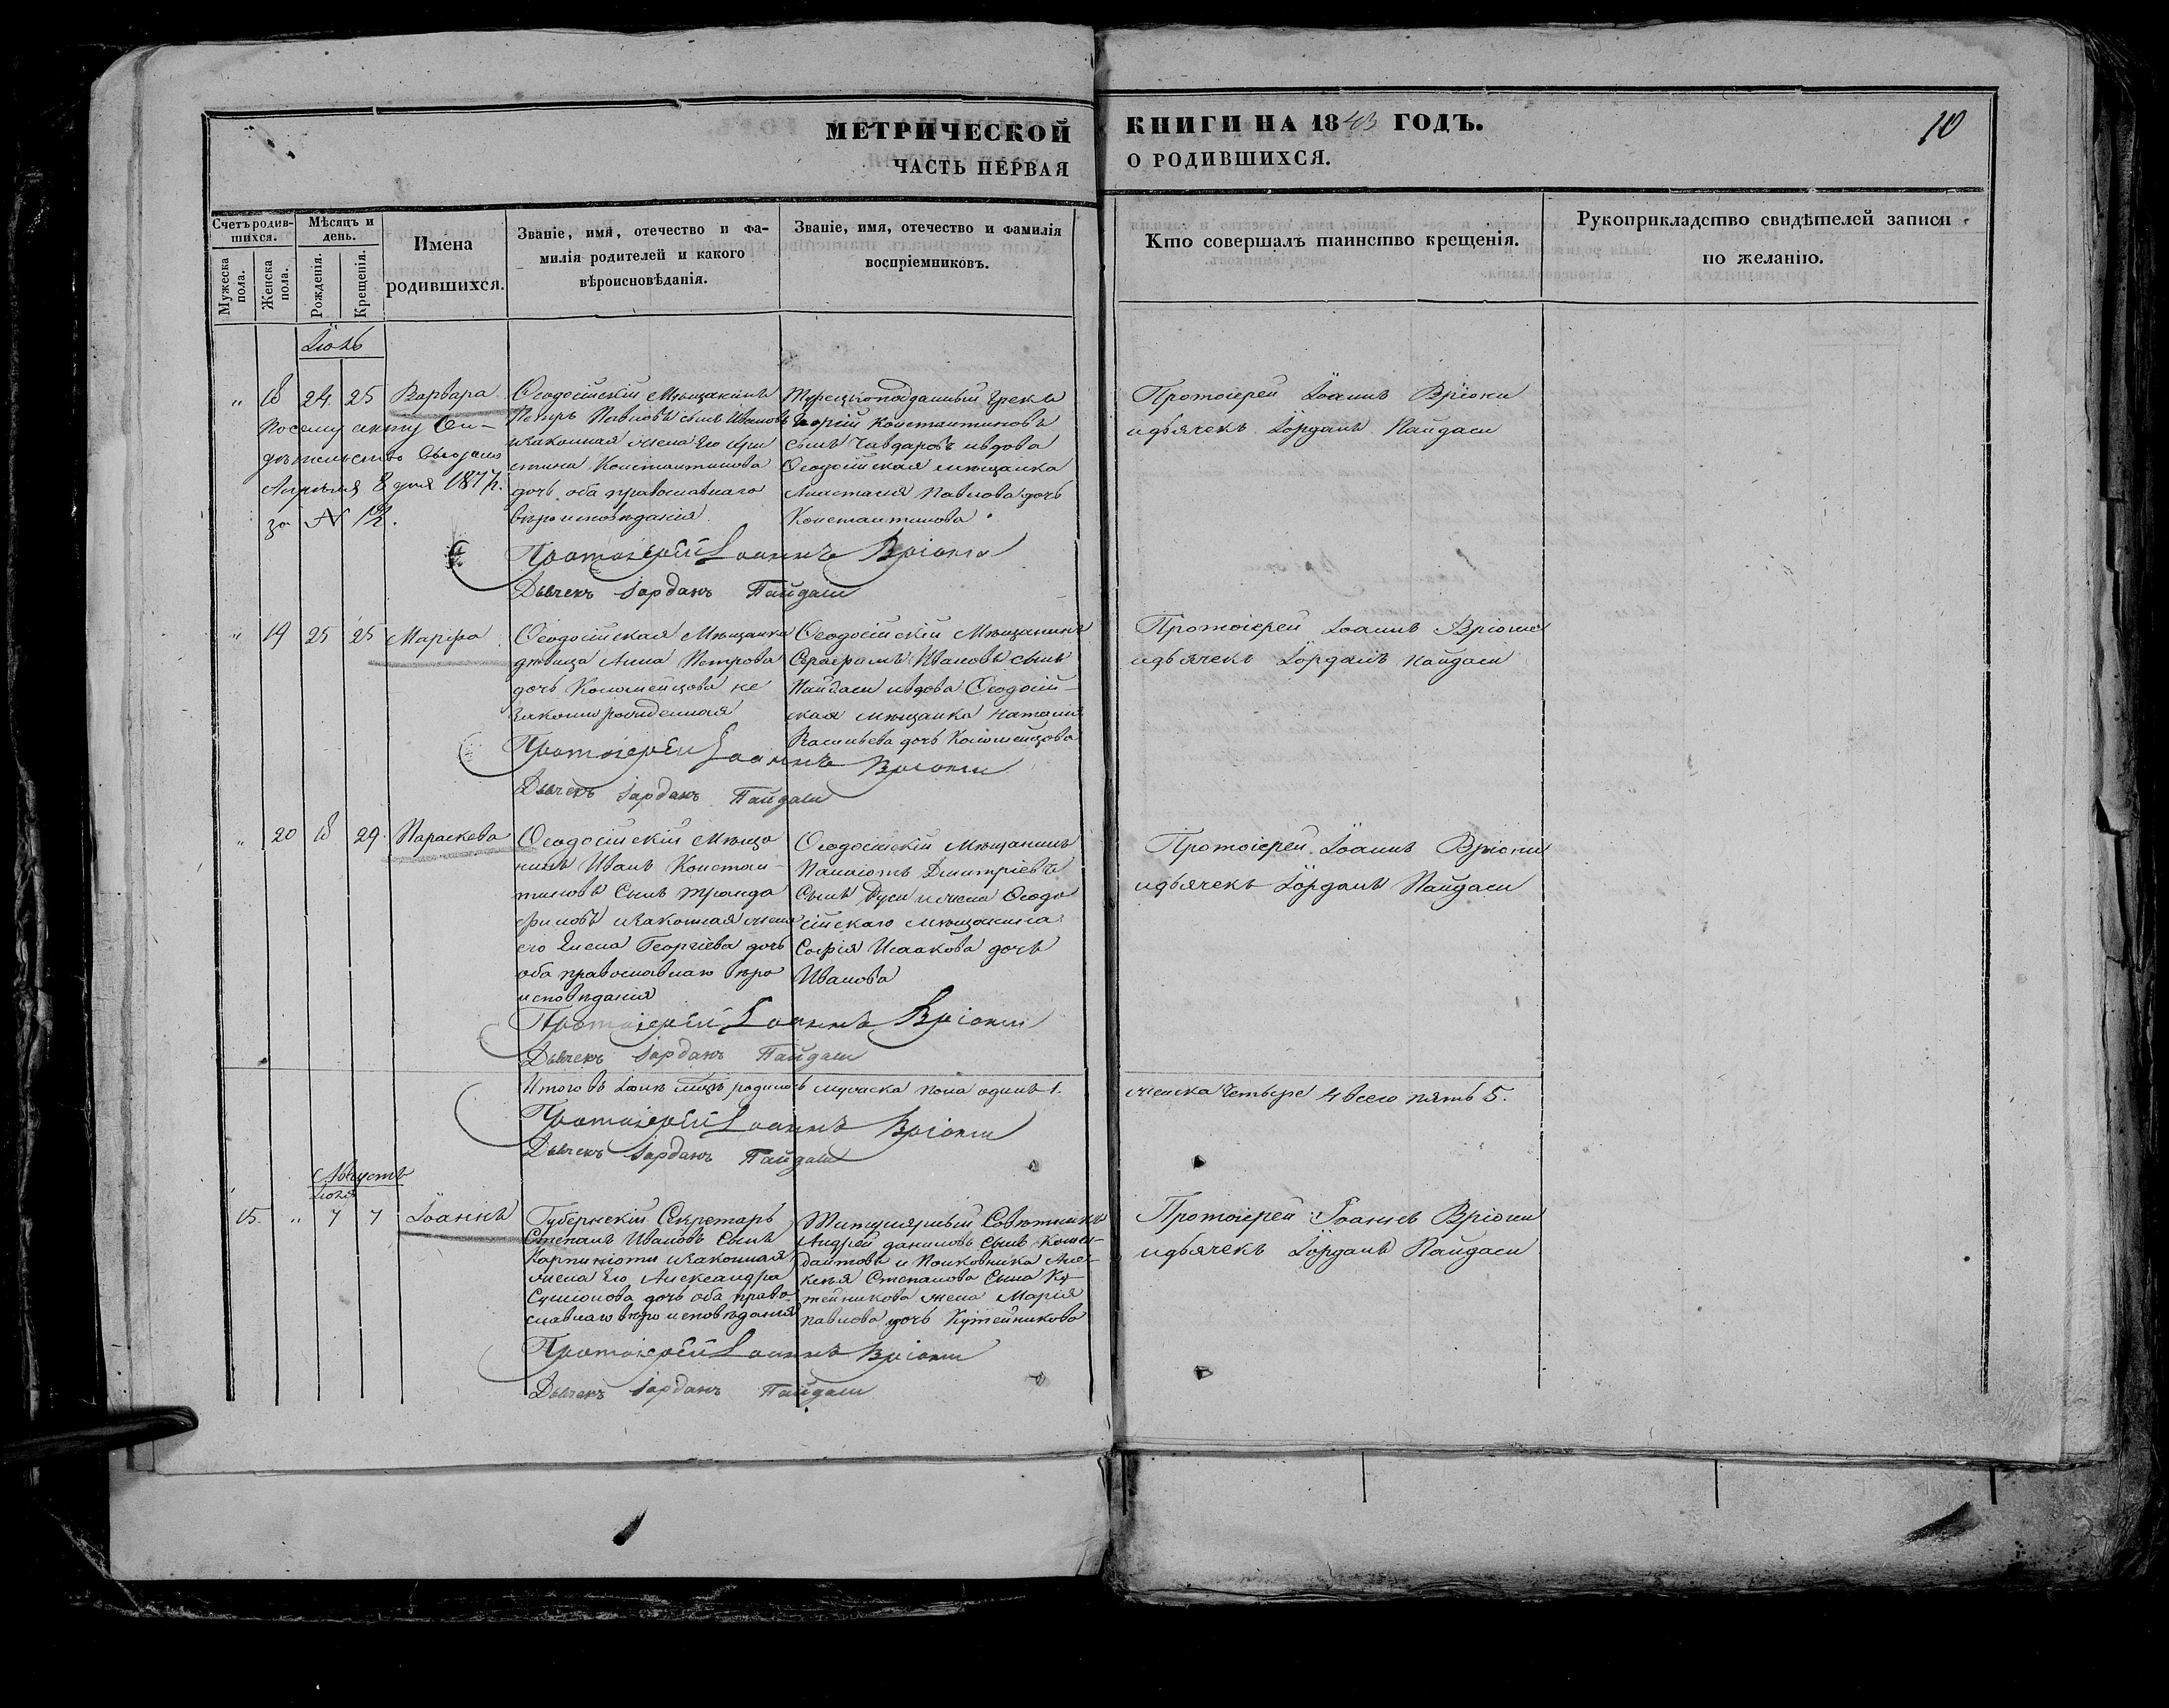 МЕТРИЧЕСКОЙ КНИГИ НА 1843 ГОДЪ.
10
ЧАСТЬ ПЕРВАЯ О РОДИВШИХСЯ.
Счетъ родив-
шихся.
Мужеска пола.
Женска пола.
Мѣсяцъ и
день.
Рожденія.
Крещенія.
Имена
родившихся.
Званіе, имя, отечество и фа-
милія родителей и какого
вѣроисповѣданія.
Званіе, имя, отечество и фамилія
воспріемниковъ.
Кто совершалъ таинство крещенія.
Рукоприкладство свидѣтелей записи
по желанію.
Іюль
" 18 24 25 Варвара
По сему акту Сви-
дѣтельство выдано
Апрѣля 8 дня 187
за N 12.
Ѳеодосійскій Мѣщанинъ
Петръ Павловъ сынъ Ивановъ
изаконная жена Его Хри
стина Константинова
дочь оба православнаго
вѣроисповѣданія
Турецкоподданный грекъ
Георгій Константиновъ
сынъ Чавдаровъ ивдова
Ѳеодосійская мѣщанка
Анастасія Павлова дочь
Константинова
Протоіерей Іоаннъ Вріони
идьячекъ Іорданъ Пайдаси
Протоіерей Іоаннъ Вріони
Дьячекъ Іорданъ Пайдаси
" 19 25 25 Марфа
Ѳеодосійская Мѣщанка
дѣвица Анна Петрова
дочь Коломейцова не
законнорожденная
Ѳеодосійскій Мѣщанинъ
Серафимъ Ивановъ сынъ
Пайдаси ивдова Ѳеодосій-
ская мѣщанка Наталія
Васильева дочь Коломейцова
Протоіерей Іоаннъ Вріони
идьячекъ Іорданъ Пайдаси
Протоіерей Іоаннъ Вріони
Дьячекъ Іорданъ Пайдаси
" 20 18 29 Параскева
Ѳеодосійскій Мѣща
нинъ Иванъ Констан-
тиновъ Сынъ Трианда
филовъ изаконная жена
его Елена Георгіева дочь
оба православнаго вѣро
исповѣданія
Ѳеодосійскій Мѣщанинъ
Панаіотъ Дмитріевъ
Сынъ Дуси ижена Ѳеодо
сійскаго мѣщанина
Софія Исаакова дочь
Иванова
Протоіерей Іоаннъ Вріони
идьячекъ Іорданъ Пайдаси
Протоіерей Іоаннъ Вріони
Дьячекъ Іорданъ Пайдаси
Итого въ Іюлѣ мцѣ родилось мужеска пола одинъ 1. женска четыре 4 всего пять 5.
Протоіерей Іоаннъ Вріони
Дьячекъ Іорданъ Пайдаси
Августъ
15. " 7 7 Іоаннъ
Губернскій Секретарь
Степанъ Ивановъ Сынъ
изаконная
жена Его Александра
дочь оба право
славнаго вѣроисповѣданія
Титулярный Совѣтникъ
Андрей Даниловъ Сынъ Комен-
дантовъ и Полковника Але-
ксѣя Степанова Сына Ку-
тейникова жена Марія
Павлова дочь Кутейникова
Протоіерей Іоаннъ Вріони
идьячекъ Іорданъ Пайдаси
Протоіерей Іоаннъ Вріони
Дьячекъ Іорданъ Пайдаси